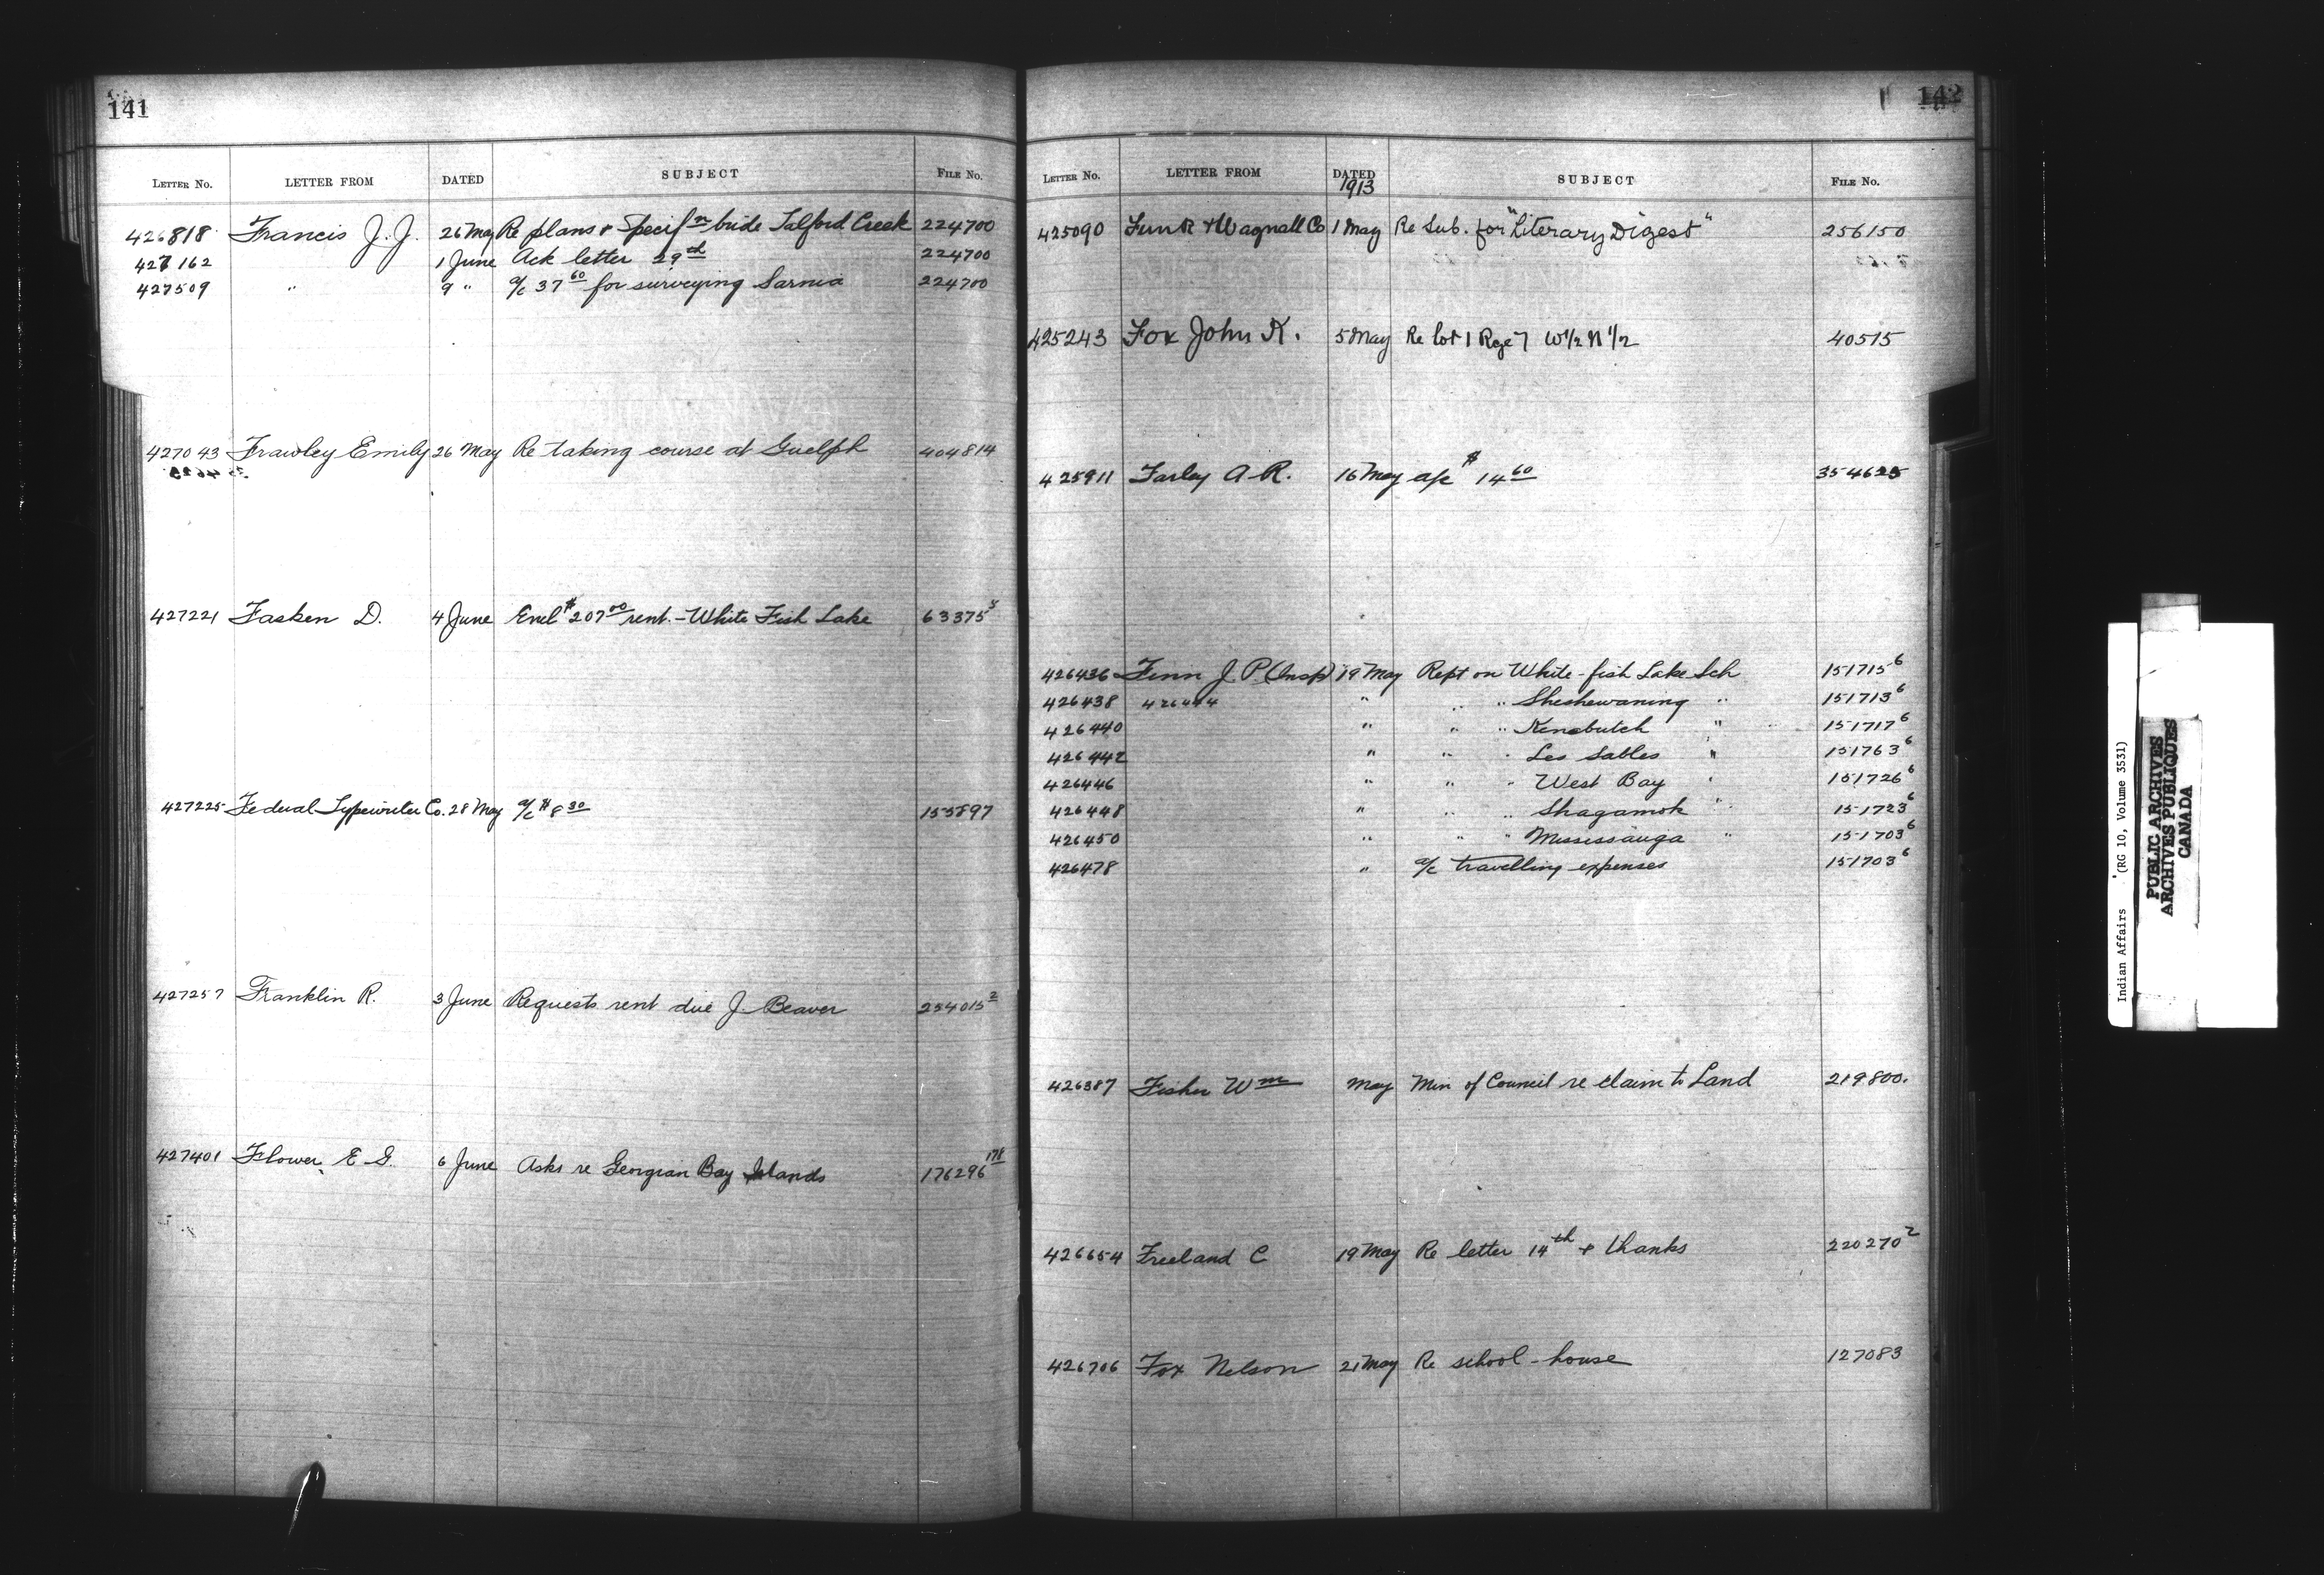 141
LETTER No. LETTER FROM DATED SUBJECT FILE No.
426818 Francis J. J. 26 May Re plans & Specifn bride Talford Creek 224700
427162 1 June Ack letter 29th 224700
427509 " 9 " a/c 37 60 for surveying Sarnia 224700
427043 Frawley Emily 26 May Re taking course at Guelph 404814
427221 Fasken D. 4 June Encl $207 00 rent. - White Fish Lake 63375
427225 Federal Typewriter Co. 28 May a/c $8 30 155897
427257 Franklin R. 3 June Requests rent due J. Beaver 254015 2
427401 Flower E G. 6 June Asks re Georgian Bay Islands 176296 178
142
LETTER No. LETTER FROM DATED SUBJECT FILE No.
1913
425090 Funk & Wagnall Co 1 May Re Sub. for "Literary Digest" 256150
425243 Fox John K. 5 May Re lot 1 Rge 7 W 1/2 N 1/2 40515
425911 Farley A. R. 16 May a/c $14 60 354625
426436 Fenn J. P (Insp) 19 May Rept on White-fish Lake Sch 151715 6
426438 426444 " " " Sheshewaning " 151713 6
426440 " " " Kenabutch " 151717 6
426442 " " " Les Sables " 151763 6
426446 " " " West Bay " 151726 6
426448 " " " Shagamok " 151723 6
426450 " " " Mississauga " 151703 6
426478 " a/c travelling expenses 151703 6
426387 Fisher Wm May Min of Council re claim to Land 219800.
426654 Freeland C 19 May Re letter 14th & thanks 220270 2
426706 Fox Nelson 21 May Re school-house 127083
Indian Affairs (RG 10, Volume 3531)
PUBLIC ARCHIVES
ARCHIVES PUBLIQUES
CANADA